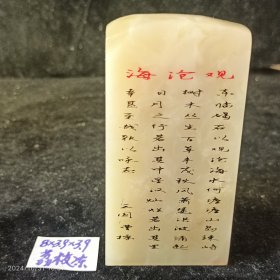 观沧海
东临碣石以观沧海水何澹澹山岛竦峙
树木丛生百草丰茂秋风萧瑟洪波涌起
日月之行若出其中星汉灿烂若出其里
幸甚至哉歌以咏志
三国曹操
8X3.9X3.9
荔枝冻